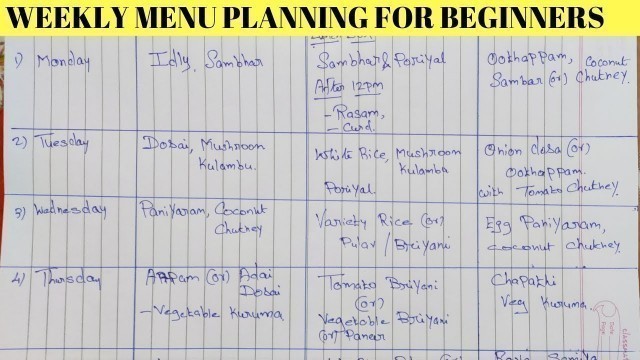 WEEKLY MENU PLANNING FOR BEGINNERS
1) Monday
Idly, Sambhar
Sambhar & Poriyal
After 12pm
- Rasam,
- Curd.
Ookhappam, Coconut
Sambar (or) Chutney.
2) Tuesday
Dosai, Mushroom
Kulambu.
White Rice, Mushroom
Kulamba
Poriyal.
Onion dosa (or)
Ookhappam.
with Tomato Chutney.
3) Wednesday
Paniyaram, Coconut
Chutney
Variety Rice (or)
Pulav / Briyani
Egg Paniyaram,
coconut chutney.
4) Thursday
Appam (or) Adai
Dosai
- Vegetable Kuruma
Tomato Briyani
(or)
Vegetable Briyani
(or) Paneer
Chapathi
Veg Kuruma.